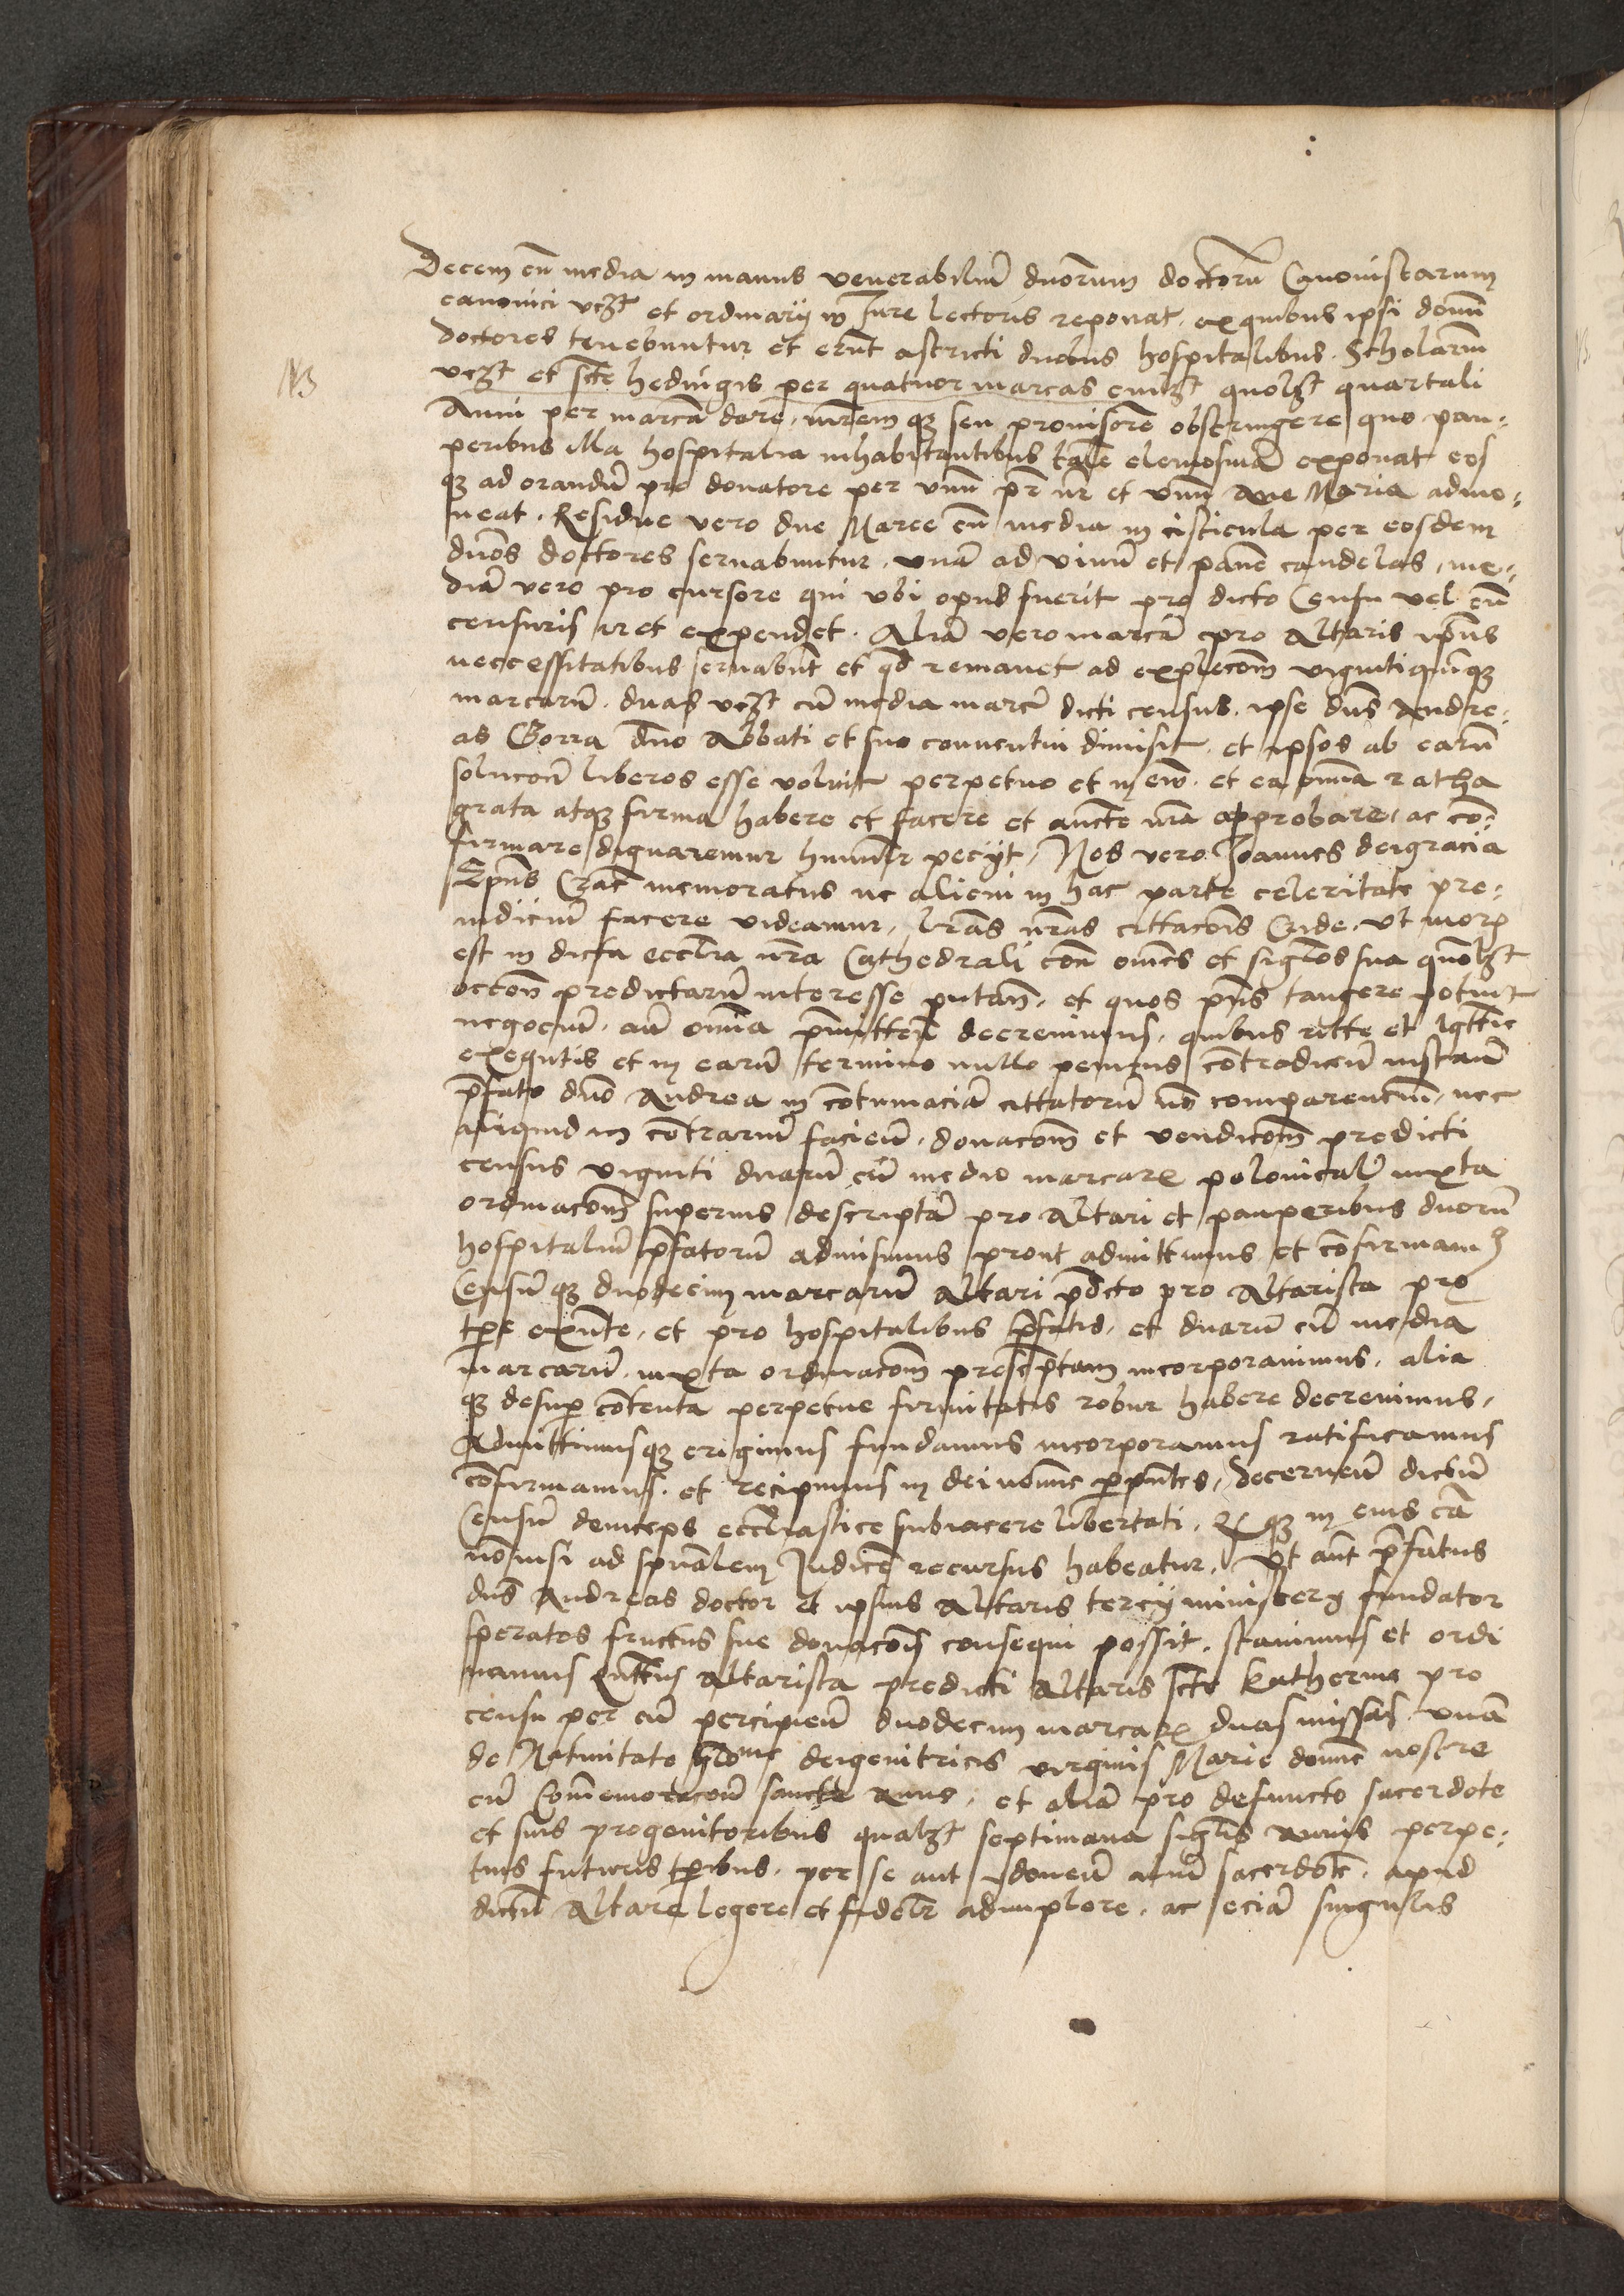 Decem cu media in manus venerabiliu duorum doctoru Canonistarum
canonici vczt et ordinarij in Jure lectoris reponat. ex quibus ipsi domi
doctores tenebuntur et erunt astricti duobus hospitalibus. Scholarium
NB
vczt et scte hedwigis per quatuor marcas cuilzt quolzt quartali
Anni per marca dare, seu prouisore obstringere quo pau-
peribus illa hospitalia inhabitantibus tale elemosina exponat eos
qz ad orandu pro donatore per vnu pr nr et vnu Aue Maria admo-
neat. Residue vero due Marce cu media in cisticula per eosdem
duos doctores seruabuntur. vna ad vinu et pane candelas, me-
dia vero pro cursore qui vbi opus fuerit pro dicto Censu vel cu
censuris iret expendet. Alia vero marca pro Altaris ipius
neccessitatibus seruabut et qd remanet ad explecom vigintiquinqz
marcaru. duas vczt cu media marca dicti census. ipse dns Andre-
as Gorra dno Abbati et suo conuentui dimisit. et ipsos ab earu
solucoe liberos esse voluit perpetuo et in ewu. et ea omia ratha
grata atqz firma habere et facere et aucte nra approbare, ac co-
firmare dignaremur humilr pecijt, Nos vero Joannes deigracia
Epus Crac memoratus ne alicui in hac parte celeritate pre-
iudiciu facere videamur, lras nras cittacois Cride. vt moris
est in dicta ecclia nra Cathedrali con omes et siglos sua quolzt
predictaru interesse putan. et quos pns tangere potuit
negociu. ad omia pmittend decreuimus. quibus ritte et lgttie
exequtis et in earu termino nullo penitus contradicen instan
pfato dno Andrea in contumacia cittatoru no comparenciu. nec
aliquid in contrariu facien. donacom et vendicom predicti
census viginti duaru cu medio marcarz polonicaliu iuxta
ordinacom superius descripta pro Altari et pauperibus duoru
hospitaliu pfatoru admisimus prout admittimus et confirmam9
Censu qz duodecim marcaru Altari pdcto pro Altarista pro
tpe exnte, et pro hospitalibus pfatis, et duaru cu media
marcaru. iuxta ordinacom prescptam incorporauimus. alia
qz desup contenta perpetue firmitatis robur habere decreuimus,
Admittimusqz erigimus fundamus incorporamus ratificamus
confirmamus. et recipimus in dei nomine p pntes, decernen dictu
Censu deinceps eccliastice subiacere libertati. Et qz in eius ca
no nisi ad spualem Judice recursus habeatur. Vt aut pfatus
dns Andreas doctor et ipsius Altaris tercij ministerij fundator
speratos fructus sue donacois consequi possit. staiuimus et ordi
namus Altarista predicti Altaris scte Katherine pro
censu per eu percipien duodecim marcarz duas missas vna
de Natiuitate gloe deigenitricis virginis Marie domine nostre
cu Commemoracoe sancte Anne. et alia pro defuncto sacerdote
et suis progenitoribus qualzt septimana siglis annis perpe-
tuis futuris tpibus. per se aut ydoneu aliu sacerdote. apud
dictu Altare legere et fidelr adimplere. ac eciam singulis